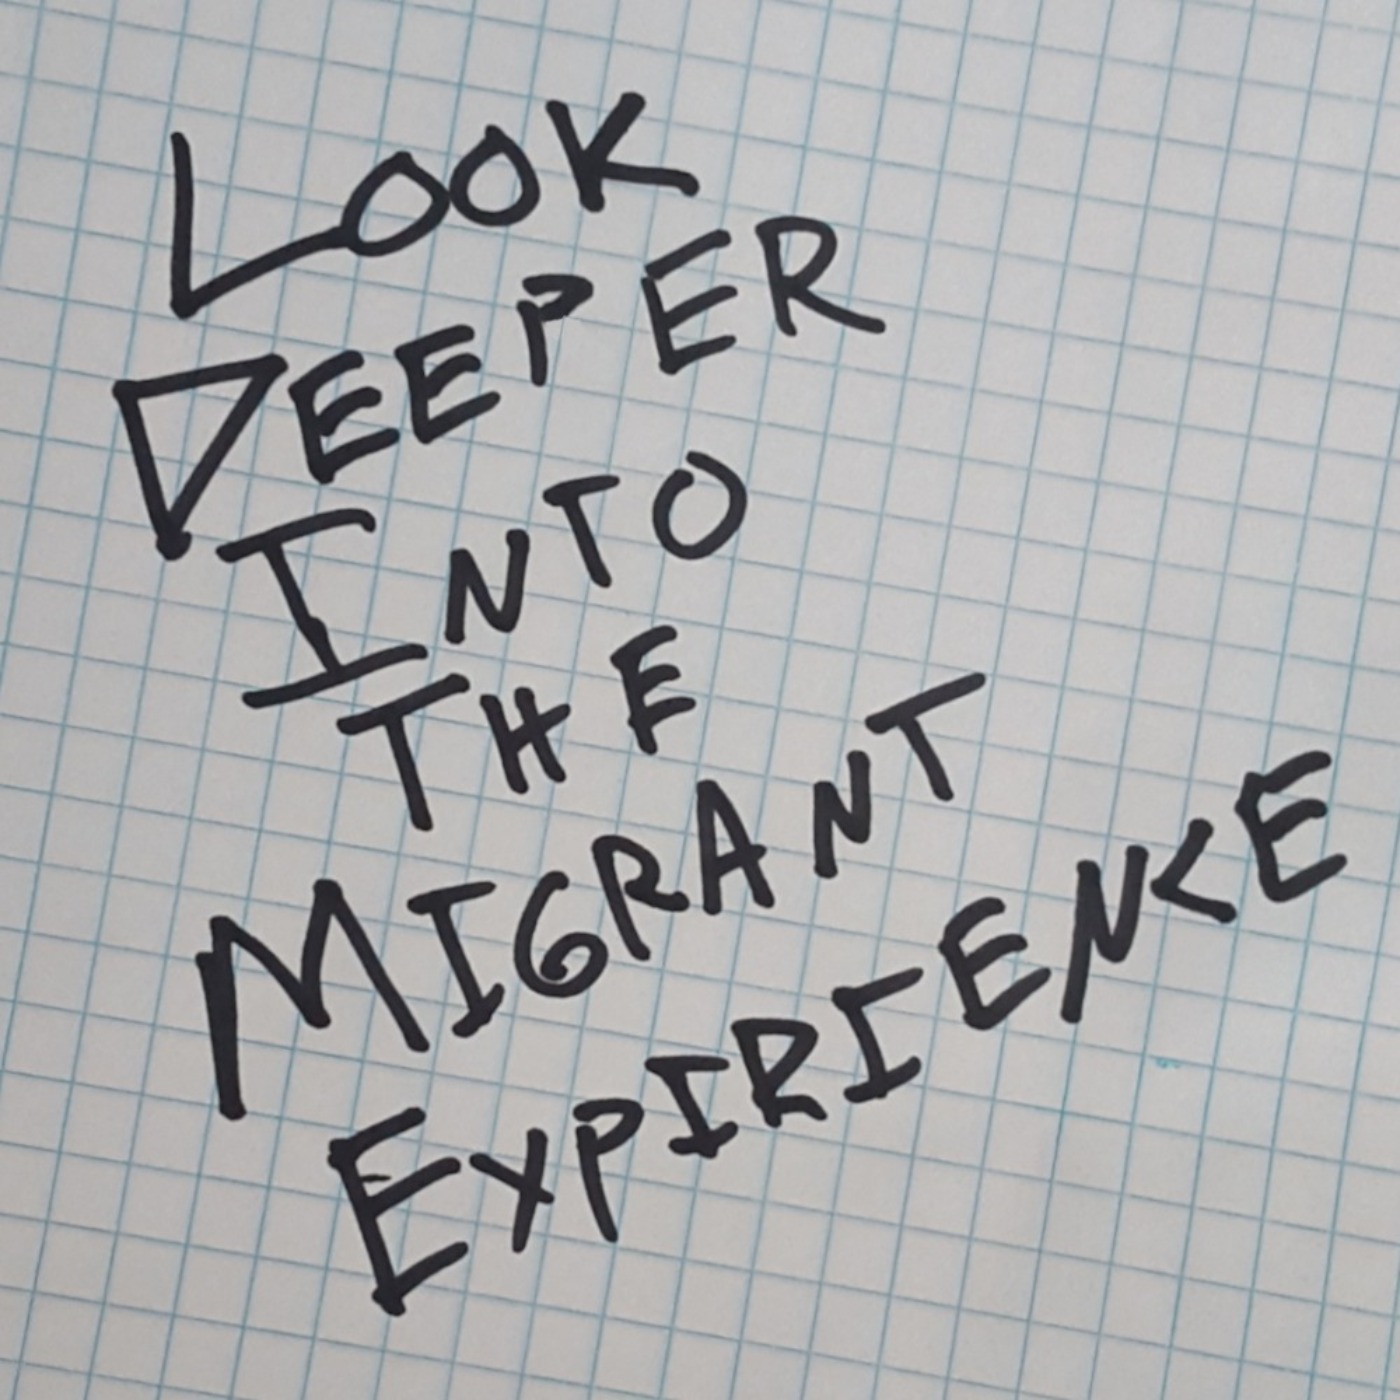 LOOK
DEEPER
INTO
THE
MIGRANT
EXPIRIENCE